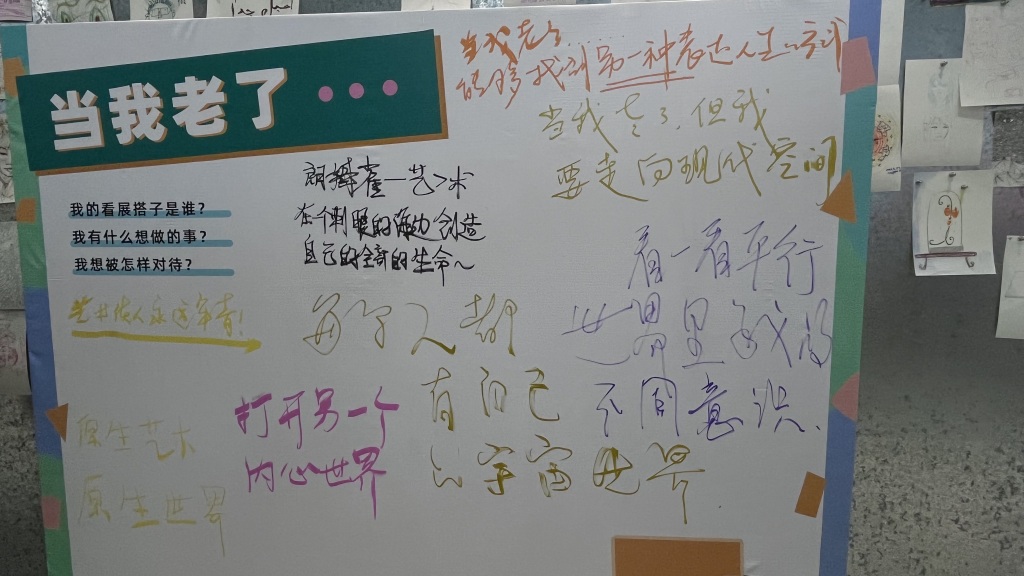 当我老了...
我的看展搭子是谁？
我有什么想做的事？
我想被怎样对待？
当我老了......
能够找到另一种表达人生的方式
当我老了，但我
要走向现代空间
艺术
创造
自己的全新的生命~
艺术使人永远年青！
看一看平行
世界里
不同意识.
每个人都
有自己
的宇宙世界
打开另一个
内心世界
原生艺术
原生世界